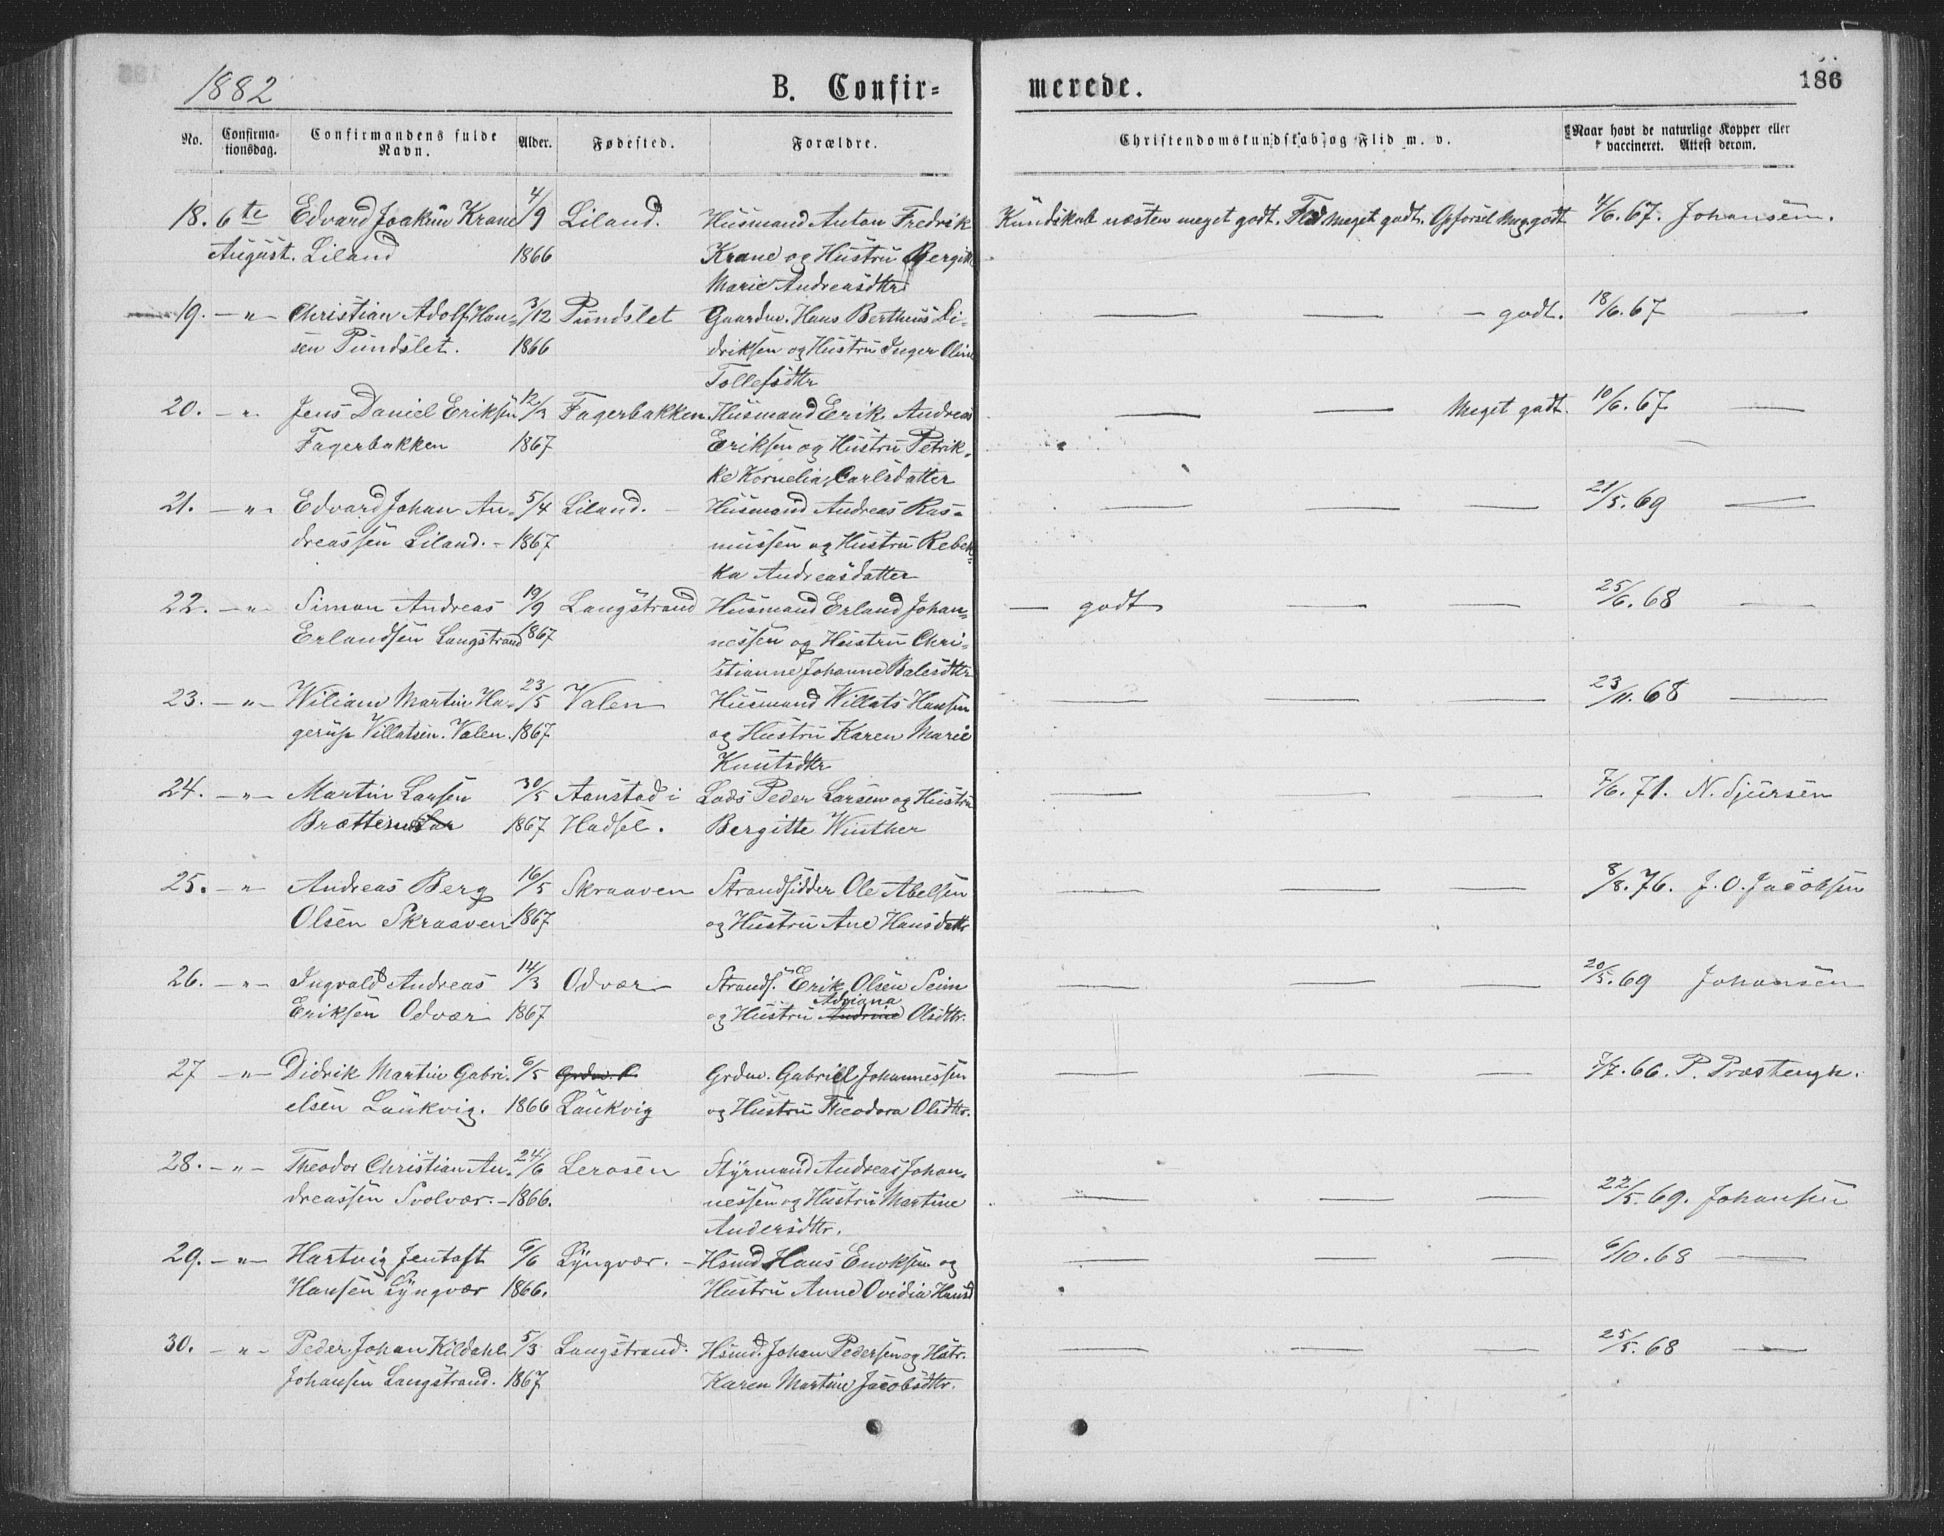 1882 B. Confir= merede. 186
No. Confirma-tionsdag. Confirmandens fulde Navn. Alder. Fødested. Forældre. Christendomskundskab og Flid m. v. Naar havt de naturlige Kopper eller vaccineret. Attest derom.
18. 6te Edvard Joakim Krane 4/9 Liland. Husmand Anton Fredrik Kundskab næsten meget godt. Flid meget godt. Opførsel meg. godt 4/6. 67. Johansen.
August. Liland 1866 Krane og Hustru Bergitt
Marie Andreasdtr
19. - " - Christian Adolf Han- 3/12 Pundslet Gaardm. Hans Bertheus Di- — — - godt. 18/6. 67 —
sen Pundslet. 1866 driksen og Hustru Inger Oline
Tollefsdtr
20. - " - Jens Daniel Eriksen 12/3 Fagerbakken. Husmand Erik Andreas — — Meget godt. 10/6. 67 —
Fagerbakken 1867 Eriksen og Hustru Petrik-
ke Kornelia Carlsdatter
21. - " - Edvard Johan An- 5/4 Liland. - Husmand Andreas Ras- — — — 21/5. 69 —
dreassen Liland. - 1867 mussen og Hustru Rebek-
ka Andreasdatter
22. - " - Simon Andreas 19/9 Langstrand Husmand Erland Johan- — godt — — 25/6. 68 —
Erlandsen Langstrand 1867 nessen og Hustru Chri-
stianne Johanne Balesdtr
23. - " - Wiliam Martin Ha- 23/5 Valen Husmand Willats Hansen — — — 23/11. 68 —
gerup Villatsen. Valen. 1867 og Hustru Karen Marie
Knutsdtr
24. - " - Martin Larsen 30/5 Aanstad i Lods Peder Larsen og Hustru — — — 7/6. 71. N. Sjursen
Brættenes 1867 Hadsel. Bergitte Winther
25. - " - Andreas Berg 16/5 Skraaven Strandsidder Ole Abelsen — — — 8/8. 76. J. O. Jacobsen
Olsen Skraaven 1867 og Hustru Ane Hansdatr
26. - " - Ingvald Andreas 14/3 Odvær Strands. Erik Olsen Seim — — — 20/5. 69 Johansen
Adriana
Eriksen Odvær 1867 og Hustru Andrine Olsdtr.
27 - " - Didrik Martin Gabri- 6/5 Grdm. Grdm. Gabriel Johannessen — — — 7/7. 66. P. Præstengh.
elsen Laukvig. 1866 Laukvig og Hustru Theodora Olsdtr.
28. - " - Theodor Christian An- 24/6 Lerosen Styrmand Andreas Johan-
dreassen Svolvær. - 1866. nessen og Hustru Martine — — — 22/5. 69. Johansen
Andersdtr.
29. - " - Hartvig Jentoft 6/6 Lyngvær. - Hsmd Hans Enoksen og — — — 6/10. 68 —
Hansen Lyngvær 1866. Hustru Anne Ovidia Hansd
30. - " - Peder Johan Kildahl 5/3 Langstrand. Hsmd. Johan Pedersen og Hstr. — — — 25/5. 68 —
Johansen Langstrand. 1867 Karen Martine Jacobsdtr.